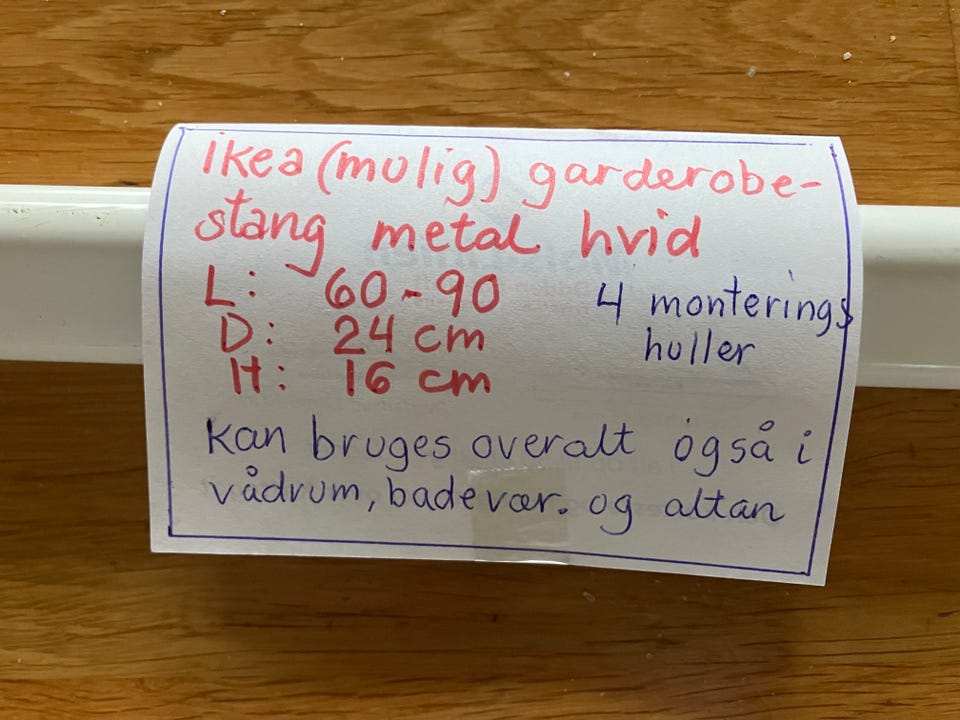 ikea (mulig) garderobe-
stang metal hvid
L: 60-90
D: 24 cm
H: 16 cm
4 monterings
huller
kan bruges overalt også i
vådrum, badevær. og altan